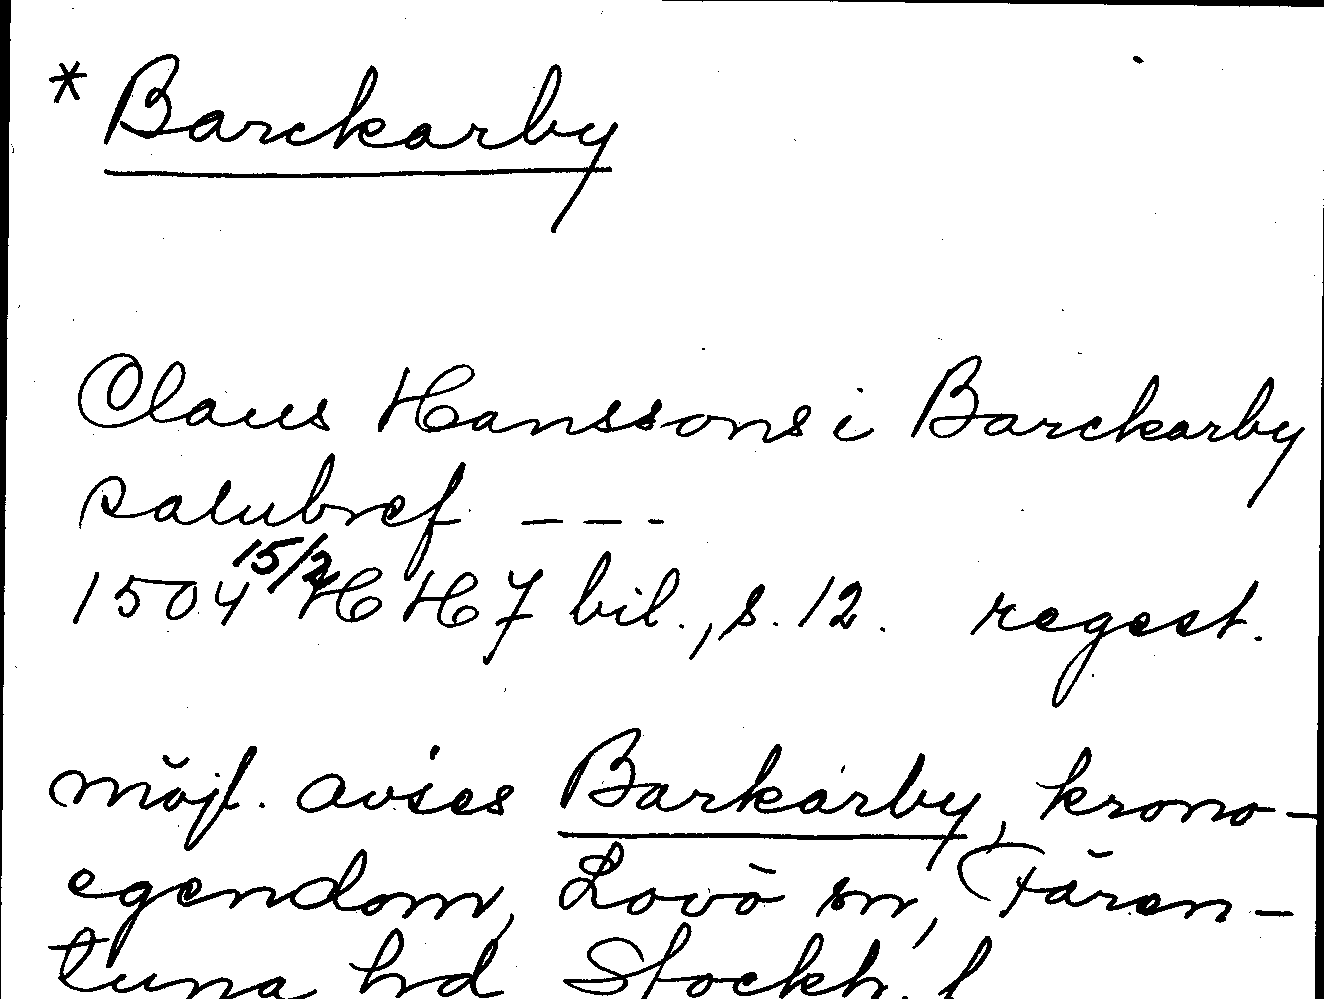 * Barckarby
Claus Hanssons i Barckarby
salubref ---
1504 15/2 HH 7 bil., s. 12. regest.
möjl. avses Barkarby, krono-
egendom, Lovö sn, Fären-
tuna hd Stockh. l